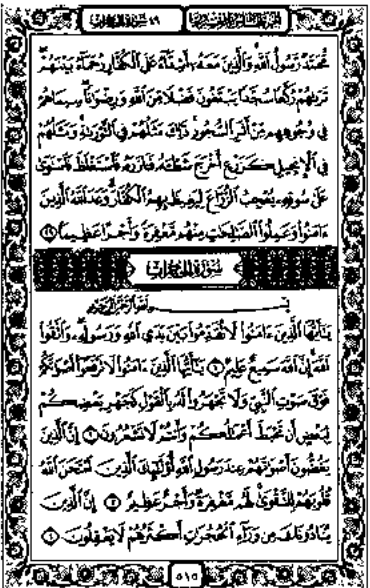 ٤٩ سورة الحجرات
مُّحَمَّدٌ رَّسُولُ ٱللَّهِ وَٱلَّذِينَ مَعَهُۥٓ أَشِدَّآءُ عَلَى ٱلْكُفَّارِ رُحَمَآءُ بَيْنَهُمْ
تَرَىٰهُمْ رُكَّعًا سُجَّدًا يَبْتَغُونَ فَضْلًا مِّنَ ٱللَّهِ وَرِضْوَٰنًا سِيمَاهُمْ
فِى وُجُوهِهِم مِّنْ أَثَرِ ٱلسُّجُودِ ذَٰلِكَ مَثَلُهُمْ فِى ٱلتَّوْرَىٰةِ وَمَثَلُهُمْ
فِى ٱلْإِنجِيلِ كَزَرْعٍ أَخْرَجَ شَطْـَٔهُۥ فَـَٔازَرَهُۥ فَٱسْتَغْلَظَ فَٱسْتَوَىٰ
عَلَىٰ سُوقِهِۦ يُعْجِبُ ٱلزُّرَّاعَ لِيَغِيظَ بِهِمُ ٱلْكُفَّارَ وَعَدَ ٱللَّهُ ٱلَّذِينَ
ءَامَنُوا۟ وَعَمِلُوا۟ ٱلصَّٰلِحَٰتِ مِنْهُم مَّغْفِرَةً وَأَجْرًا عَظِيمًۢا ٢٩
سورة الحجرات
بِسْمِ ٱللَّهِ ٱلرَّحْمَٰنِ ٱلرَّحِيمِ
يَٰٓأَيُّهَا ٱلَّذِينَ ءَامَنُوا۟ لَا تُقَدِّمُوا۟ بَيْنَ يَدَىِ ٱللَّهِ وَرَسُولِهِۦ وَٱتَّقُوا۟
ٱللَّهَ إِنَّ ٱللَّهَ سَمِيعٌ عَلِيمٌ ١ يَٰٓأَيُّهَا ٱلَّذِينَ ءَامَنُوا۟ لَا تَرْفَعُوٓا۟ أَصْوَٰتَكُمْ
فَوْقَ صَوْتِ ٱلنَّبِىِّ وَلَا تَجْهَرُوا۟ لَهُۥ بِٱلْقَوْلِ كَجَهْرِ بَعْضِكُمْ
لِبَعْضٍ أَن تَحْبَطَ أَعْمَٰلُكُمْ وَأَنتُمْ لَا تَشْعُرُونَ ٢ إِنَّ ٱلَّذِينَ
يَغُضُّونَ أَصْوَٰتَهُمْ عِندَ رَسُولِ ٱللَّهِ أُو۟لَٰٓئِكَ ٱلَّذِينَ ٱمْتَحَنَ ٱللَّهُ
قُلُوبَهُمْ لِلتَّقْوَىٰ لَهُم مَّغْفِرَةٌ وَأَجْرٌ عَظِيمٌ ٣ إِنَّ ٱلَّذِينَ
يُنَادُونَكَ مِن وَرَآءِ ٱلْحُجُرَٰتِ أَكْثَرُهُمْ لَا يَعْقِلُونَ ٤
٥١٥